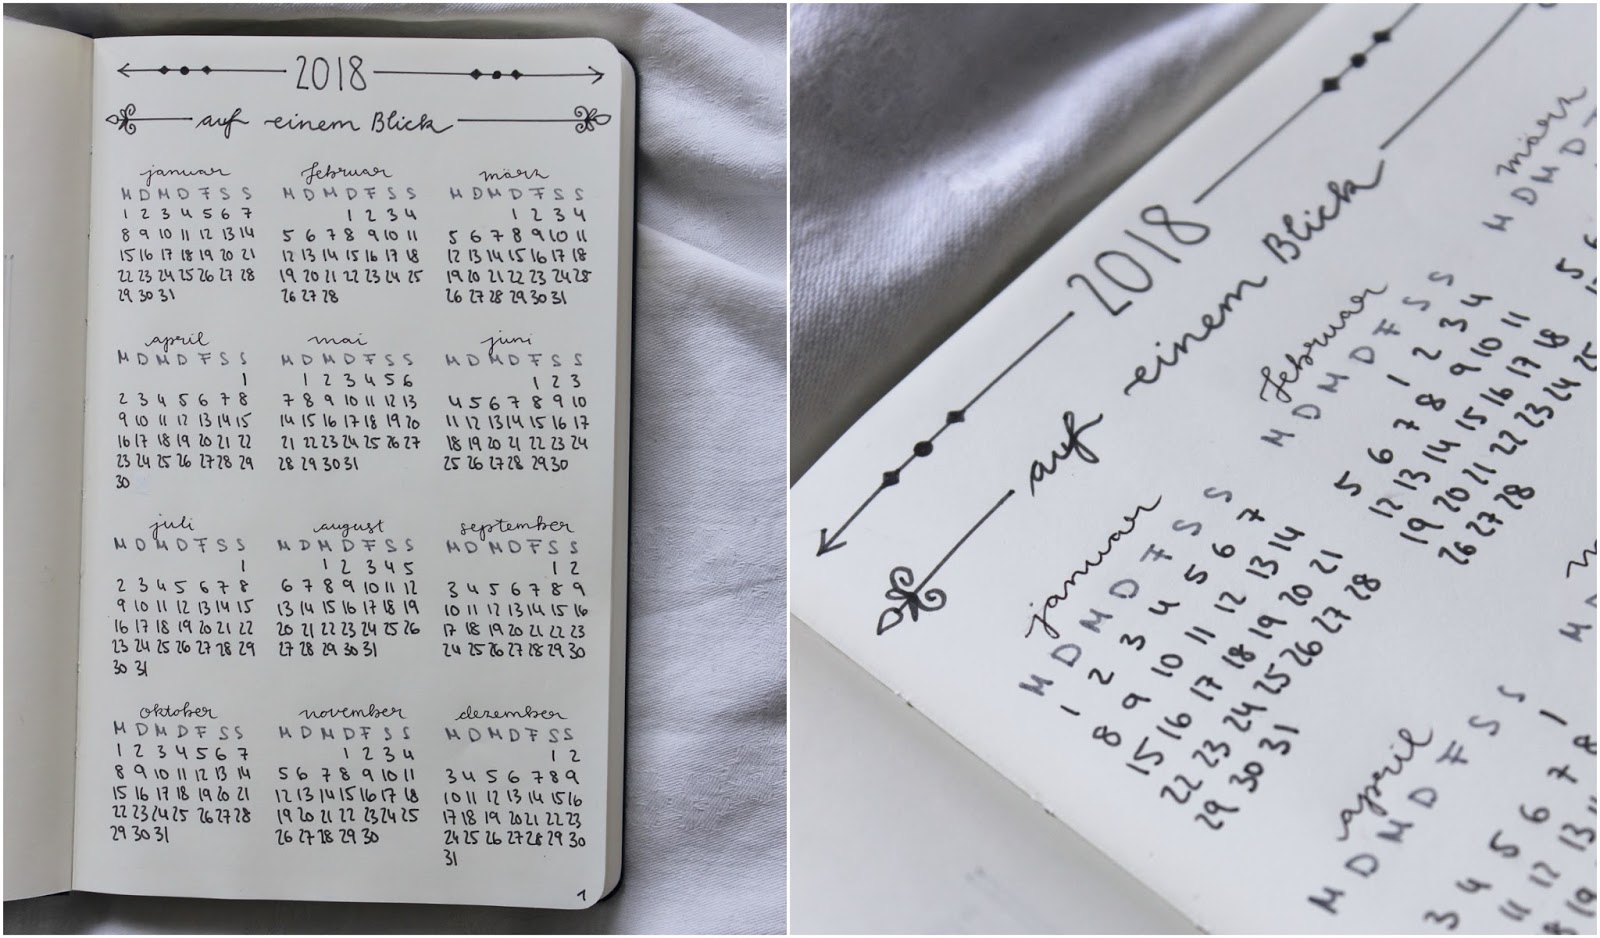 2018
auf einem Blick
januar
M D M D F S S
1 2 3 4 5 6 7
8 9 10 11 12 13 14
15 16 17 18 19 20 21
22 23 24 25 26 27 28
29 30 31
februar
M D M D F S S
1 2 3 4
5 6 7 8 9 10 11
12 13 14 15 16 17 18
19 20 21 22 23 24 25
26 27 28
märz
M D M D F S S
1 2 3 4
5 6 7 8 9 10 11
12 13 14 15 16 17 18
19 20 21 22 23 24 25
26 27 28 29 30 31
april
M D M D F S S
1
2 3 4 5 6 7 8
9 10 11 12 13 14 15
16 17 18 19 20 21 22
23 24 25 26 27 28 29
30
mai
M D M D F S S
1 2 3 4 5 6
7 8 9 10 11 12 13
14 15 16 17 18 19 20
21 22 23 24 25 26 27
28 29 30 31
juni
M D M D F S S
1 2 3
4 5 6 7 8 9 10
11 12 13 14 15 16 17
18 19 20 21 22 23 24
25 26 27 28 29 30
juli
M D M D F S S
1
2 3 4 5 6 7 8
9 10 11 12 13 14 15
16 17 18 19 20 21 22
23 24 25 26 27 28 29
30 31
august
M D M D F S S
1 2 3 4 5
6 7 8 9 10 11 12
13 14 15 16 17 18 19
20 21 22 23 24 25 26
27 28 29 30 31
september
M D M D F S S
1 2
3 4 5 6 7 8 9
10 11 12 13 14 15 16
17 18 19 20 21 22 23
24 25 26 27 28 29 30
oktober
M D M D F S S
1 2 3 4 5 6 7
8 9 10 11 12 13 14
15 16 17 18 19 20 21
22 23 24 25 26 27 28
29 30 31
november
M D M D F S S
1 2 3 4
5 6 7 8 9 10 11
12 13 14 15 16 17 18
19 20 21 22 23 24 25
26 27 28 29 30
dezember
M D M D F S S
1 2
3 4 5 6 7 8 9
10 11 12 13 14 15 16
17 18 19 20 21 22 23
24 25 26 27 28 29 30
31
1
2018
auf einem Blick
januar
M D M D F S S
1 2 3 4 5 6 7
8 9 10 11 12 13 14
15 16 17 18 19 20 21
22 23 24 25 26 27 28
29 30 31
februar
M D M D F S S
1 2 3 4
5 6 7 8 9 10 11
12 13 14 15 16 17 18
19 20 21 22 23 24 25
26 27 28
märz
M D M D F
5 6
april
M D M D F S S
1
3 4 5 6 7 8
11 12 13
18 19
M D